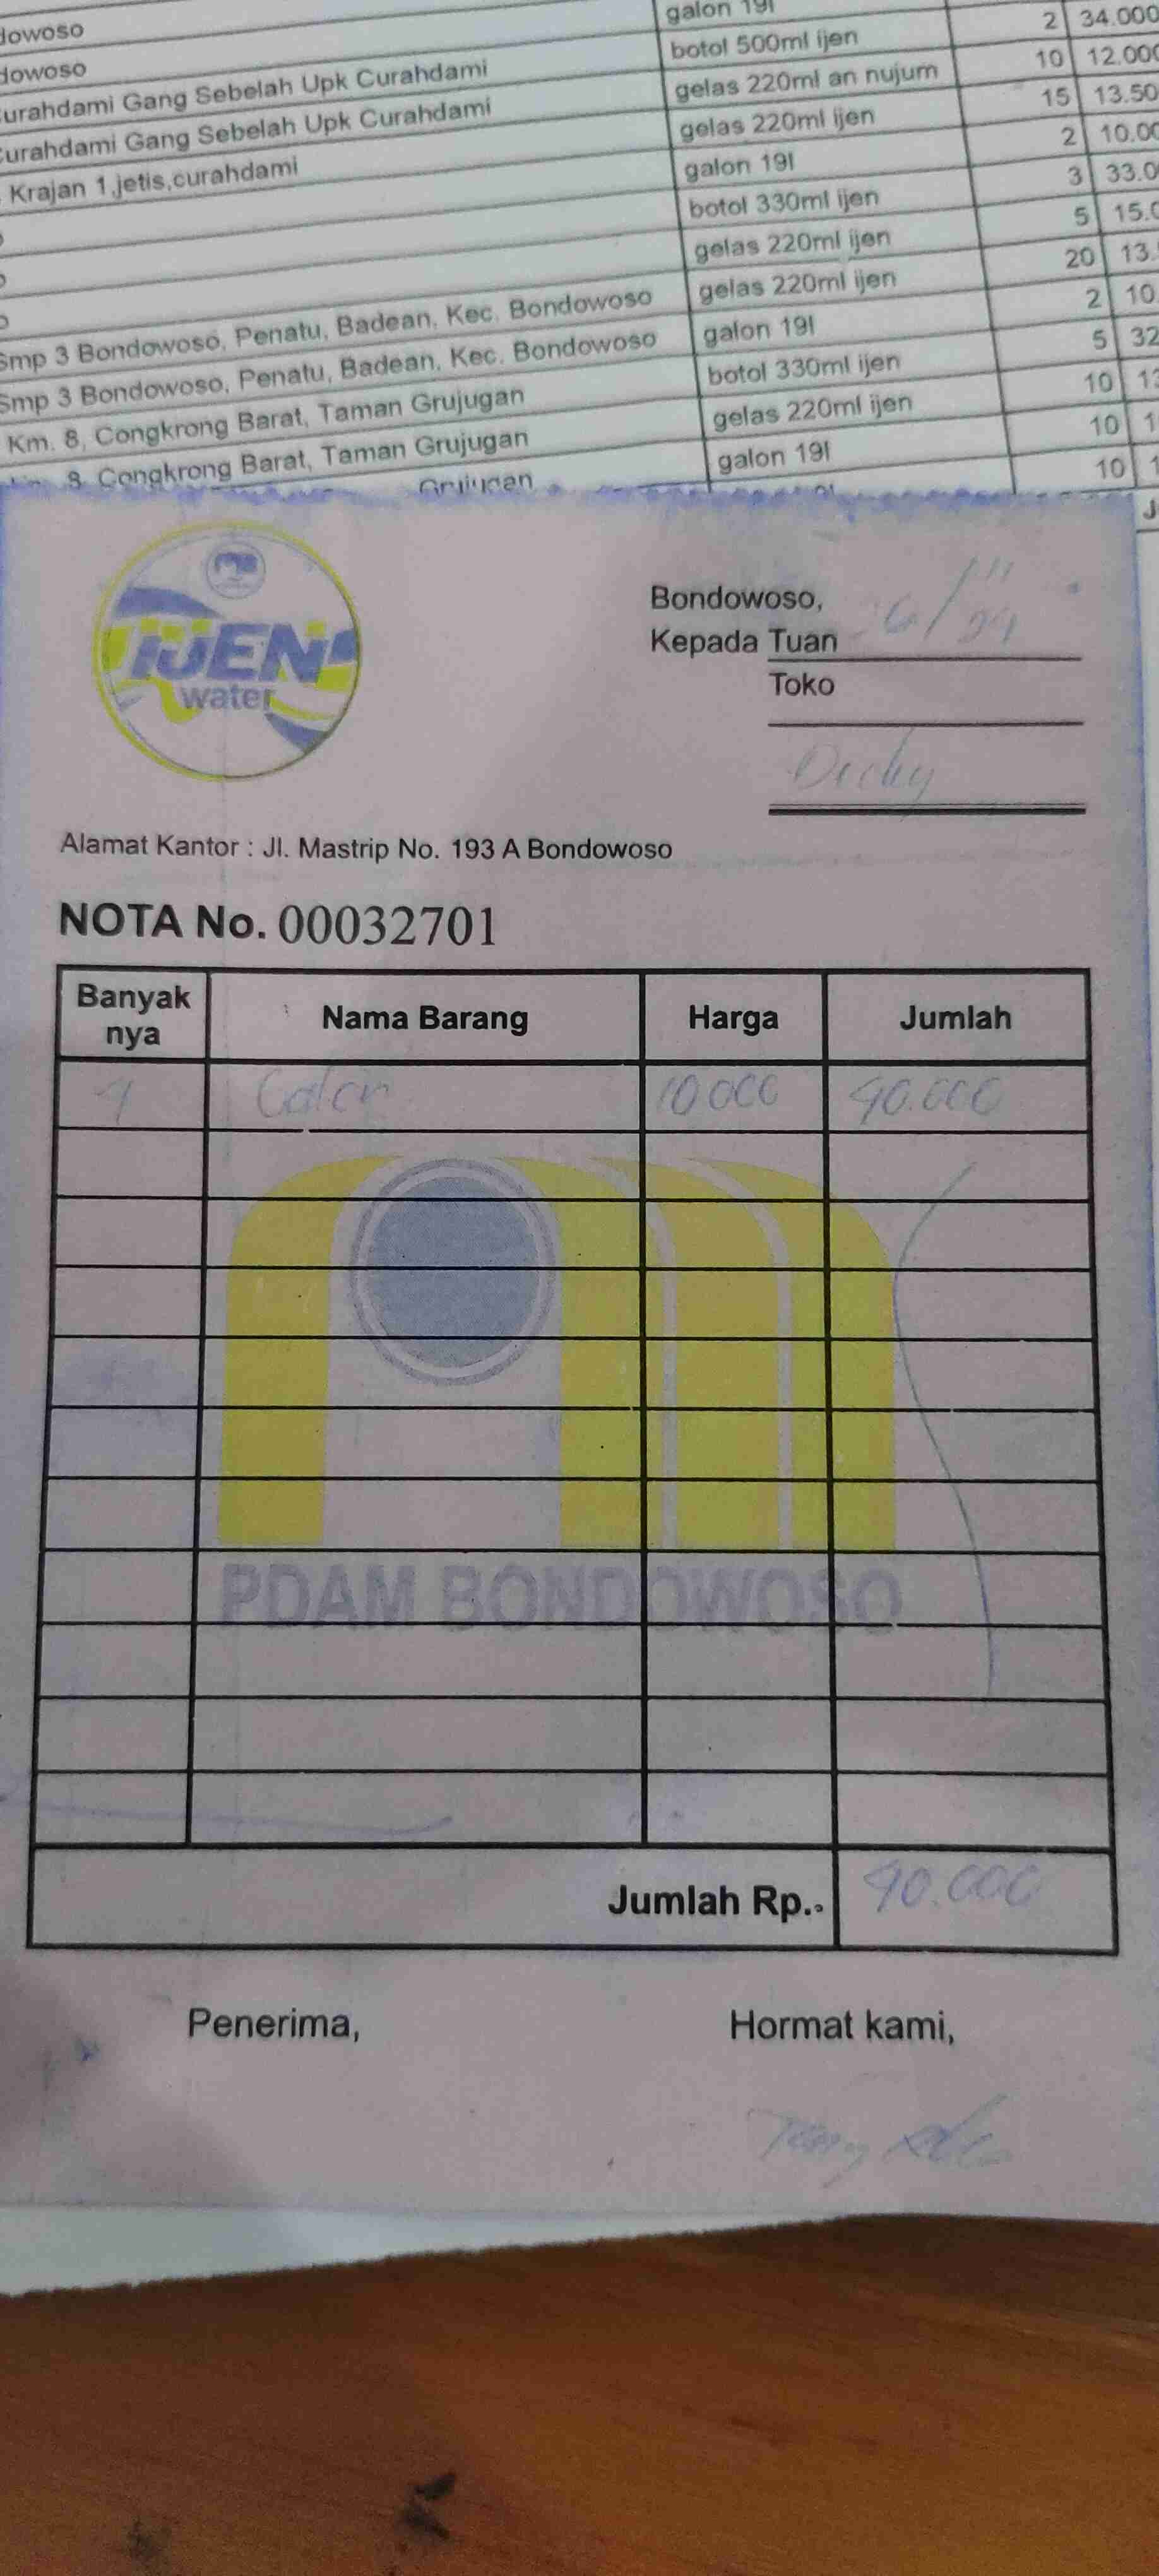 dowoso
galon 19l
2 34.000
dowoso
botol 500ml ijen
10 12.000
Curahdami Gang Sebelah Upk Curahdami
gelas 220ml an nujum
15 13.50
Curahdami Gang Sebelah Upk Curahdami
gelas 220ml ijen
2 10.00
Krajan 1,jetis,curahdami
galon 19l
3 33.0
botol 330ml ijen
5 15.0
gelas 220ml ijen
20 13.
Smp 3 Bondowoso, Penatu, Badean, Kec. Bondowoso
gelas 220ml ijen
2 10.
Smp 3 Bondowoso, Penatu, Badean, Kec. Bondowoso
galon 19l
5 32
Km. 8, Congkrong Barat, Taman Grujugan
botol 330ml ijen
10
8, Congkrong Barat, Taman Grujugan
gelas 220ml ijen
10 1
Grujugan
galon 19l
10 1
IJEN
water
Bondowoso,
Kepada Tuan
Toko
Dicky
Alamat Kantor : Jl. Mastrip No. 193 A Bondowoso
NOTA No. 00032701
Banyak nya Nama Barang Harga Jumlah
4 Galon 10.000 40.000
PDAM BONDOWOSO
Jumlah Rp.- 40.000
Penerima, Hormat kami,